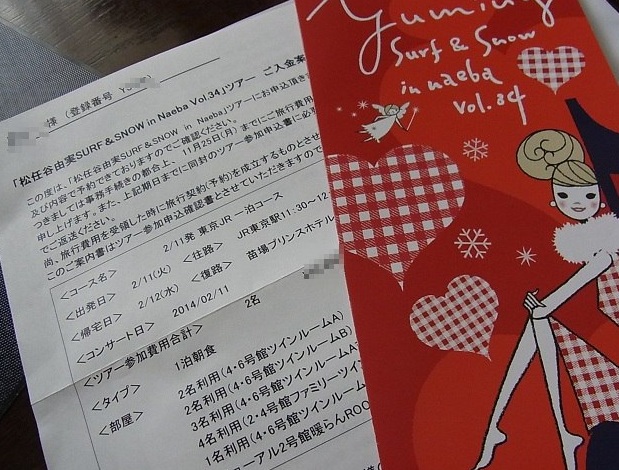 様 (登録番号 Y
「松任谷由実SURF&SNOW in Naeba Vol.34」ツアー ご入金案
この度は、「松任谷由実SURF&SNOW in Naeba」ツアーにお申込頂き
及び内容で予約できておりますのでご確認ください。
つきましては事務手続きの都合上、11月25日(月)までにご旅行費用
申し上げます。また、上記期日までに同封のツアー参加申込書に必
でご返送ください。
尚、旅行費用を受領した時に旅行契約(予約)を成立するものとさせ
このご案内書はツアー参加申込確認書とさせていただきますので
<コース名> 2/11発 東京JR 一泊コース
<出発日> 2/11(火) <往路> JR東京駅11:30~12
<帰宅日> 2/12(水) <復路> 苗場プリンスホテル
<コンサート日> 2014/02/11
<ツアー参加費用合計> 2名
<タイプ> 1泊朝食
<部屋> 2名利用(4・6号館ツインルームA)
2名利用(4・6号館ツインルームB)
3名利用(4・6号館ツインルームA
4名利用(2・4号館ファミリーツイン
1名利用(4・6号館ツインルーム
ーアル2号館暖らんROO
Yuming
Surf & Snow
in naeba
vol.34